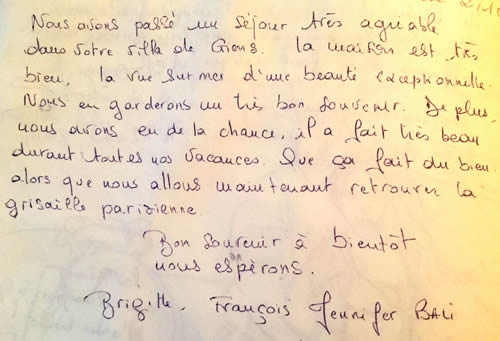 Nous avons passé un séjour très agréable
dans votre villa de Giens. la maison est très
bien, la vue sur mer d'une beauté exceptionnelle.
Nous en garderons un très bon souvenir. De plus,
nous avons eu de la chance, il a fait très beau
durant toutes nos vacances. Que ça fait du bien
alors que nous allons maintenant retrouver la
grisaille parisienne.
Bon souvenir à bientôt
nous espérons.
Brigitte. François Jennifer BALI